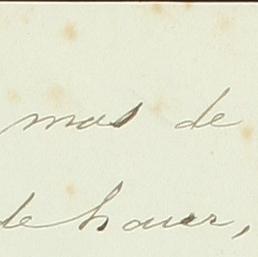 mas de
de haver,